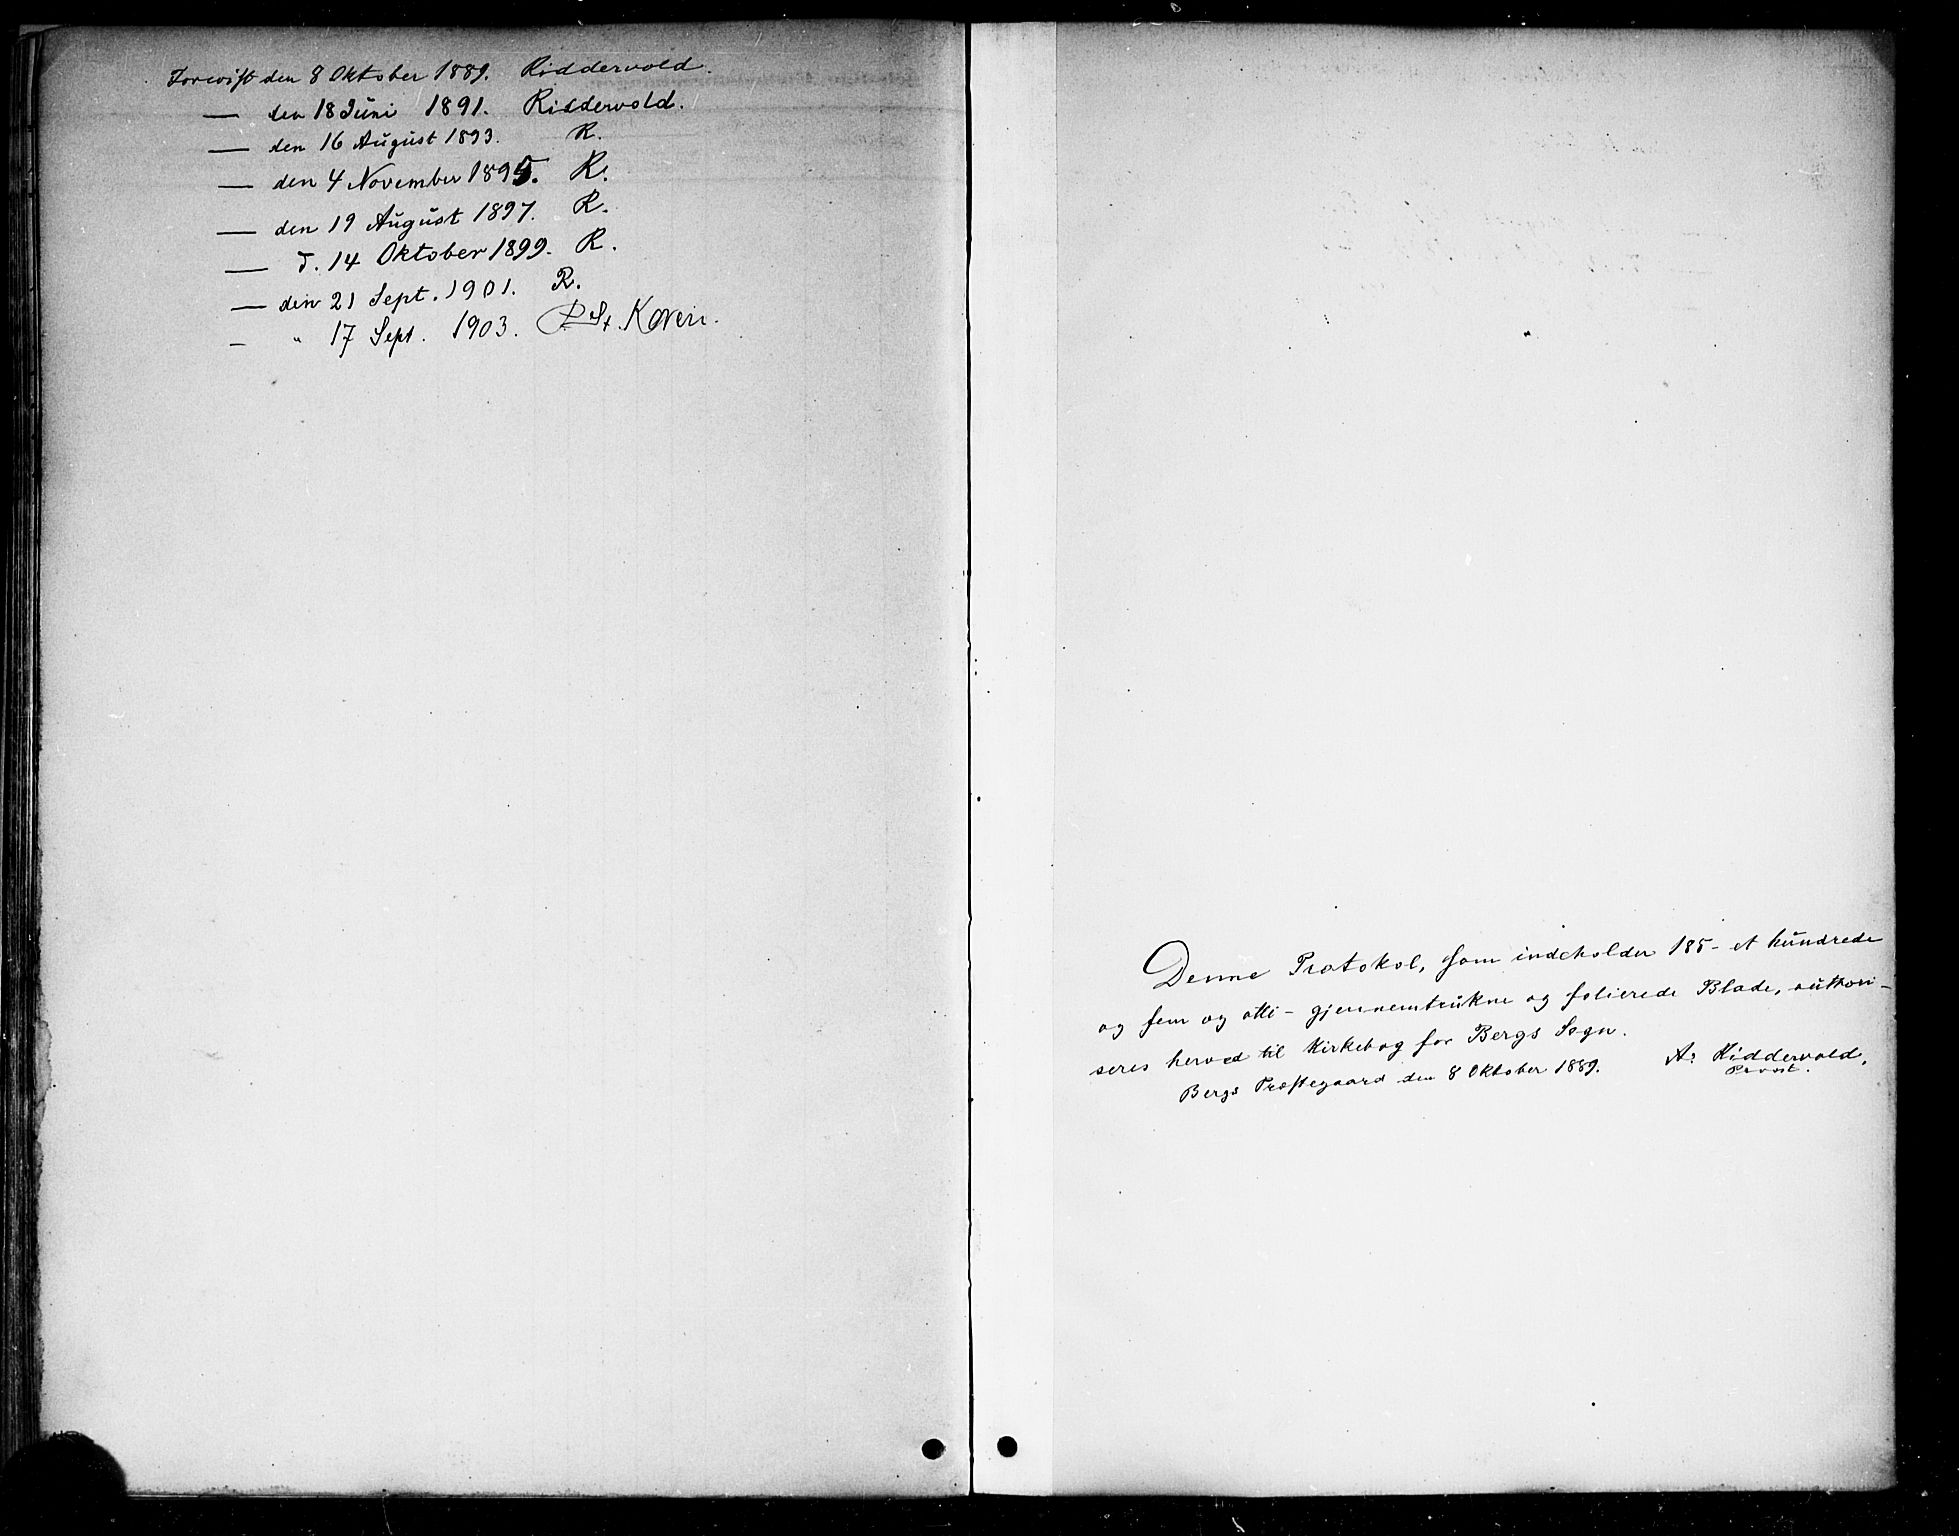 Forevist den 8 Oktober 1889. Riddervold.
— den 18 Juni 1891. Riddervold.
— den 16 August 1893. R.
— den 4 November 1895. R.
— den 19 August 1897. R.
— d. 14 Oktober 1899. R.
— den 21 Sept. 1901. R.
— " 17 Sept. 1903. Koren.
Denne Protokol, som indeholder 185 - et hundrede
og fem og otti - gjennemtrukne og folierede Blade, authori-
seres herved til Kirkebog for Bergs Sogn.
Bergs Præstegaard den 8 Oktober 1889. A. Riddervold,
Provst.